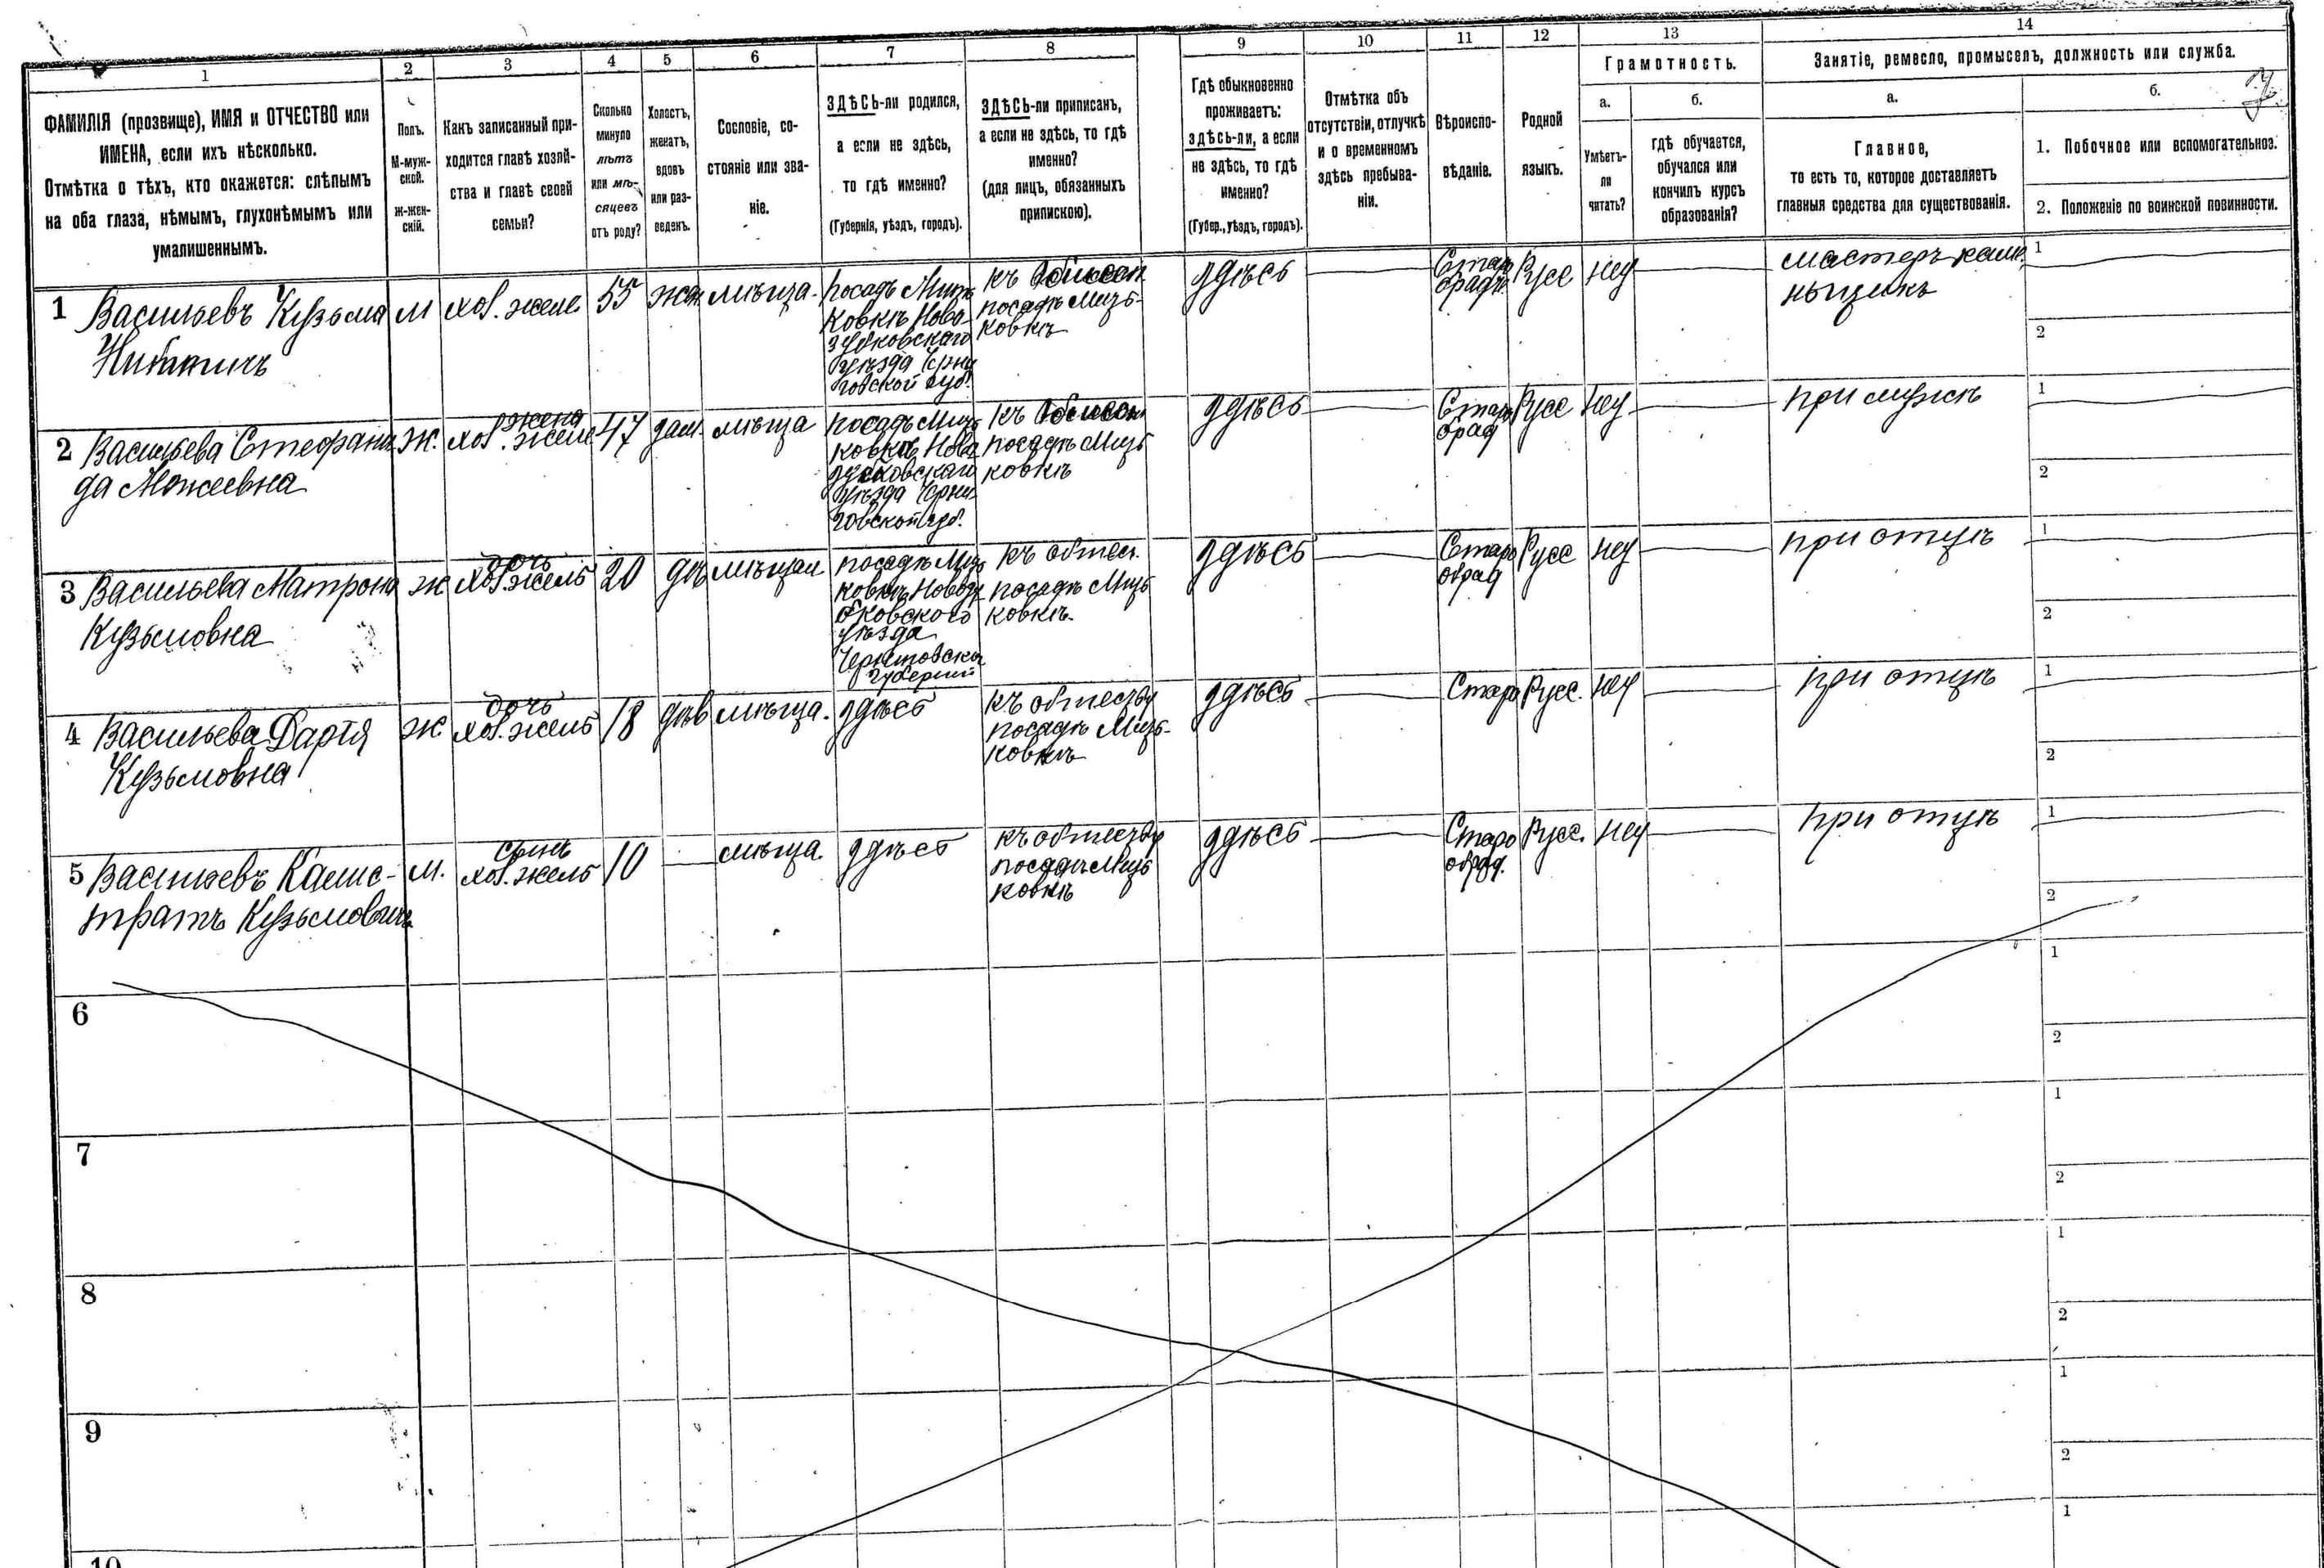 1
2
3
4
5
6
7
8
9
10
11
12
13
14
ФАМИЛІЯ (прозвище), ИМЯ и ОТЧЕСТВО или
ИМЕНА, если ихъ нѣсколько.
Отмѣтка о тѣхъ, кто окажется: слѣпымъ
на оба глаза, нѣмымъ, глухонѣмымъ или
умалишеннымъ.
Полъ.
М-муж-
ской.
Ж-жен-
скій.
Какъ записанный при-
ходится главѣ хозяй-
ства и главѣ своей
семьи?
Сколько
минуло
лѣтъ
или мѣ-
сяцевъ
отъ роду?
Холостъ,
женатъ,
вдовъ
или раз-
веденъ.
Сословіе, со-
стояніе или зва-
ніе.
ЗДѢСЬ-ли родился,
а если не здѣсь,
то гдѣ именно?
(Губернія, уѣздъ, городъ).
ЗДѢСЬ-ли приписанъ,
а если не здѣсь, то гдѣ
именно?
(для лицъ, обязанныхъ
припискою).
Гдѣ обыкновенно
проживаетъ:
здѣсь-ли, а если
не здѣсь, то гдѣ
именно?
(Губер., уѣздъ, городъ).
Отмѣтка объ
отсутствіи, отлучкѣ
и о временномъ
здѣсь пребыва-
ніи.
Вѣроиспо-
вѣданіе.
Родной
языкъ.
Грамотность.
а.
Умѣетъ-
ли
читать?
б.
гдѣ обучается,
обучался или
кончилъ курсъ
образованія?
Занятіе, ремесло, промыселъ, должность или служба.
а.
Главное,
то есть то, которое доставляетъ
главныя средства для существованія.
б.
1. Побочное или вспомогательное.
2. Положеніе по воинской повинности.
1
Васильевъ Кузьма
м
хоз.
55
жен
мѣща.
посадъ Мизь
ковкѣ Ново-
зубковскаго
уѣзда Черни
говской губ.
къ
посадѣ Мизь-
ковкѣ
здѣсь
Старо
обрядъ
Русс
неу
мастеръ камн
ньщикъ
1
2
2
Васильева Стефани
да Моисеевна
ж.
жена
хоз.
47
зам.
мѣща
посадъ Мизь
ковкѣ Ново
зубковскаго
уѣзда Черни
говской губ.
къ
посадѣ Мизь
ковкѣ
здѣсь
Старо
обряд
Русс
неу
при мужѣ
1
2
3
Васильева Матрона
Кузьмовна
ж
дочь
хоз.
20
дѣ
мѣщан
посадѣ Мизь
ковкѣ Новозу
бковского
уѣзда
Черниговской
Губерніи
къ общес.
посадѣ Мизь
ковкѣ.
здѣсь
Старо
обряд
Русс
неу
при отцѣ
1
2
4
Васильева Дарія
Кузьмовна
ж
дочь
хоз.
18
дѣв
мѣща.
здѣсь
къ обществу
посадѣ Мизь-
ковкѣ
здѣсь
Старо
Русс.
неу
при отцѣ
1
2
5
Васильевъ Калис-
тратъ Кузьмовичъ
м.
сынъ
хоз.
10
мѣща.
здѣсь
къ обществу
посадѣ Мизь
ковкѣ
здѣсь
Старо
обряд.
Русс.
неу
при отцѣ
1
2
6
1
2
7
1
2
8
1
2
9
1
2
10
1